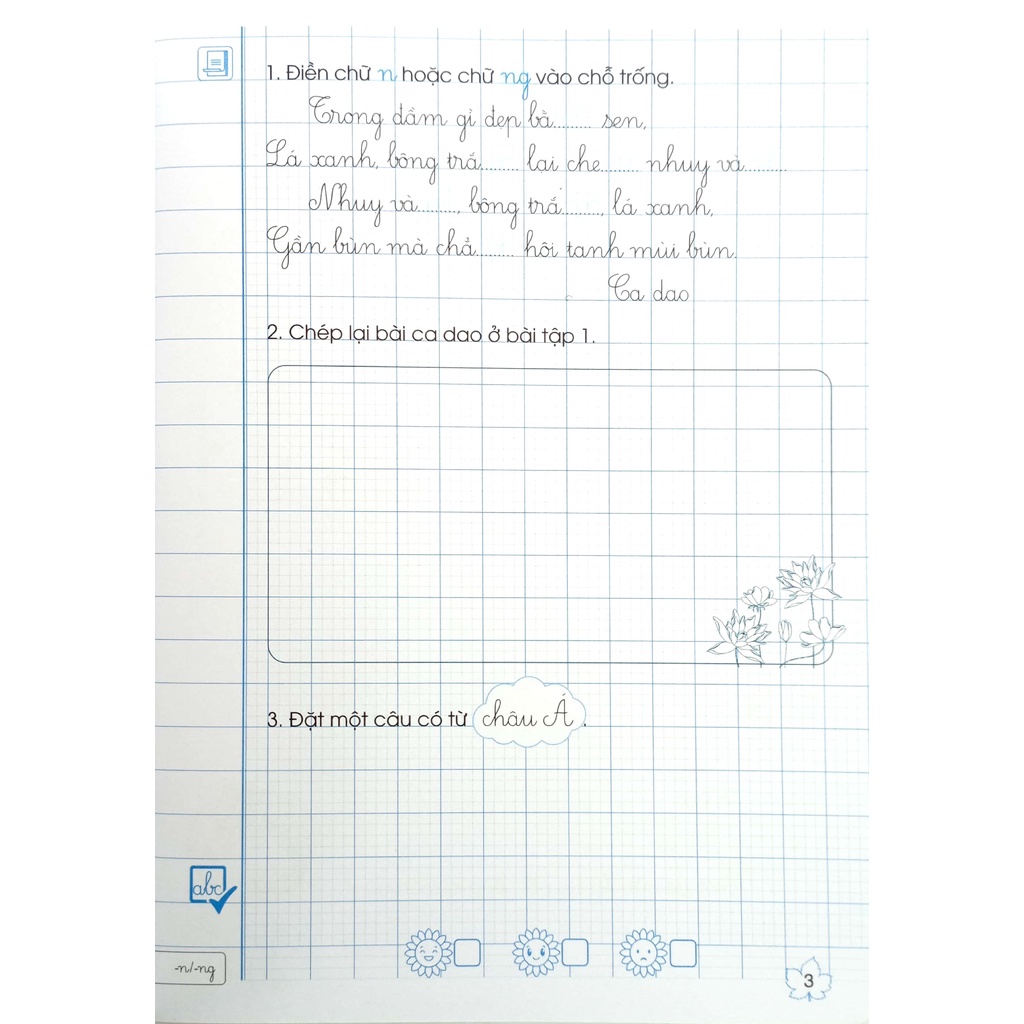 1. Điền chữ n hoặc chữ ng vào chỗ trống.
Trong đầm gì đẹp bằ........ sen,
Lá xanh, bông trắ........ lại che........ nhuy và.........
Nhuy và........., bông trắ........., lá xanh,
Gần bùn mà chẳ........ hôi tanh mùi bùn.
Ca dao
2. Chép lại bài ca dao ở bài tập 1.
3. Đặt một câu có từ châu Á.
abc
-n/-ng
3